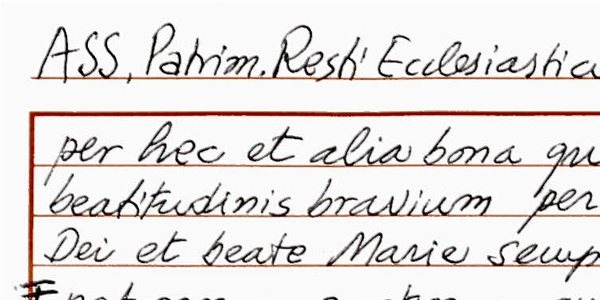 ASS, Patrim. Resti Ecclesiastica
per hec et alia bona qu
beatitudinis bravium per
Dei et beate Marie semp